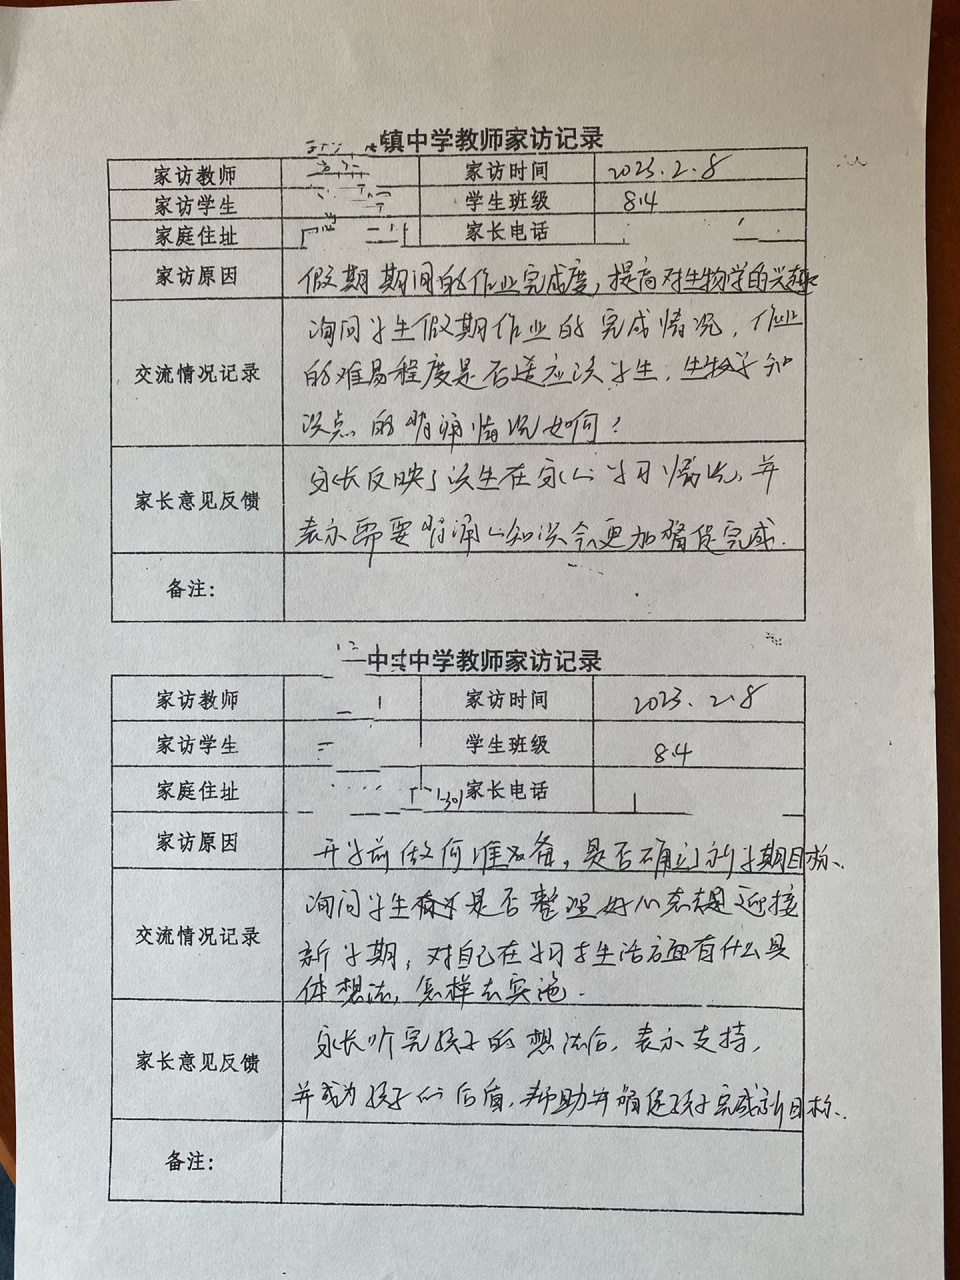 镇中学教师家访记录
家访教师 家访时间 2023.2.8
家访学生 学生班级 8.4
家庭住址 家长电话
家访原因 假期期间的作业完成度,提高对生物学的兴趣
交流情况记录 询问学生假期作业的完成情况,作业
的难易程度是否适应该学生,生物学知
识点的背诵情况如何?
家长意见反馈 家长反映了该生在家的学习情况,并
表示需要背诵的知识会更加督促完成.
备注:
中学教师家访记录
家访教师 家访时间 2023.2.8
家访学生 学生班级 8.4
家庭住址 1301 家长电话
家访原因 开学前做何准备,是否确立新学期目标.
交流情况记录 询问学生是否整理好心态迎接
新学期,对自己在学习与生活方面有什么具
体想法,怎样去实施.
家长意见反馈 家长听完孩子的想法后,表示支持,
并成为孩子的后盾,帮助并督促孩子完成新目标.
备注: